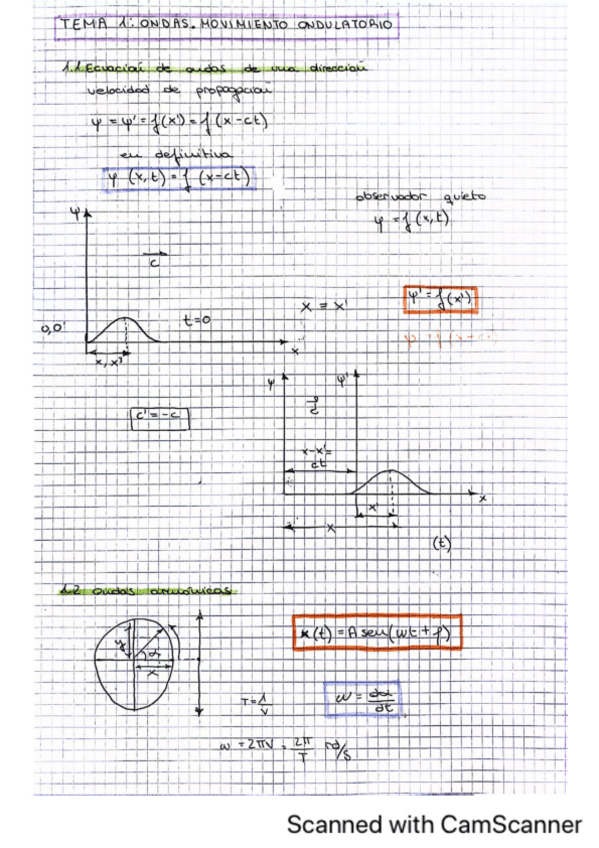 TEMA 1: ONDAS. MOVIMIENTO ONDULATORIO
1.1 Ecuación de ondas de una dirección
velocidad de propagación
ψ = ψ' = f(x') = f(x-ct)
en definitiva
ψ (x,t) = f (x-ct)
observador quieto
ψ = f(x,t)
ψ
c
t=0
x ≡ x'
ψ' = f(x')
0,0'
x
x, x'
ψ
ψ'
c' = -c
x-x'=
ct
x'
x
x
(t)
1.2 Ondas armónicas
y
α
x
x(t) = A sen(ωt + φ)
T = 1/ν
ω = dα/dt
ω = 2πν = 2π/T rd/s
Scanned with CamScanner